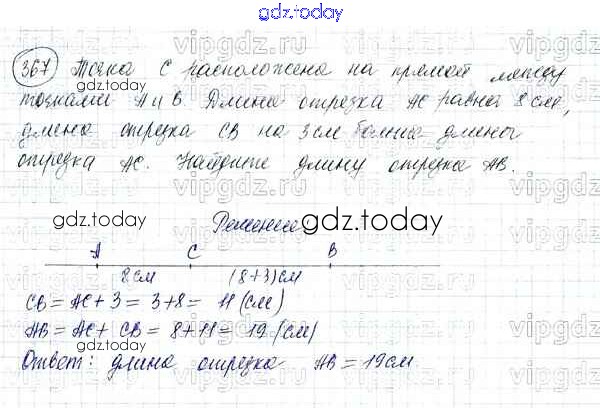 gdz.today
367 Точка С расположена на прямой между
точками А и В. Длина отрезка АС равна 8 см,
длина отрезка СВ на 3 см больше длины
отрезка АС. Найдите длину отрезка АВ.
gdz.today
Решение
gdz.today
А С В
8 см (8+3) см
СВ = АС + 3 = 3+8 = 11 (см)
АВ = АС + СВ = 8+11 = 19 (см)
Ответ: длина отрезка АВ = 19 см
gdz.today